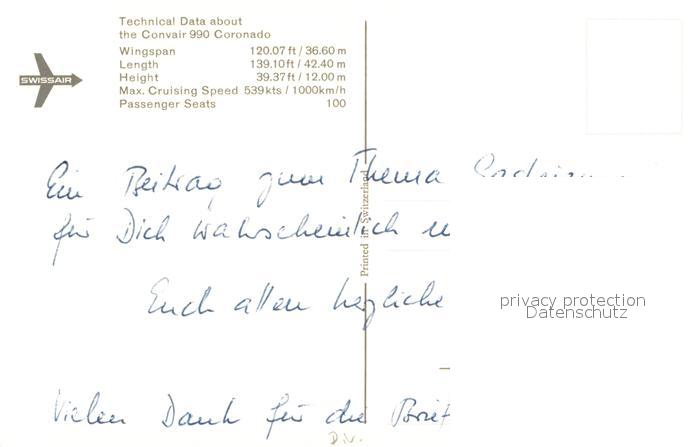 Technical Data about
the Convair 990 Coronado
Wingspan 120.07 ft / 36.60 m
Length 139.10 ft / 42.40 m
Height 39.37 ft / 12.00 m
Max. Cruising Speed 539 kts / 1000 km/h
Passenger Seats 100
SWISSAIR
Printed in Switzerland
Ein Beitrag zum Thema
für Dich wahrscheinlich
Euch allen herzliche
privacy protection
Datenschutz
Vielen Dank für die Brief
D.V.